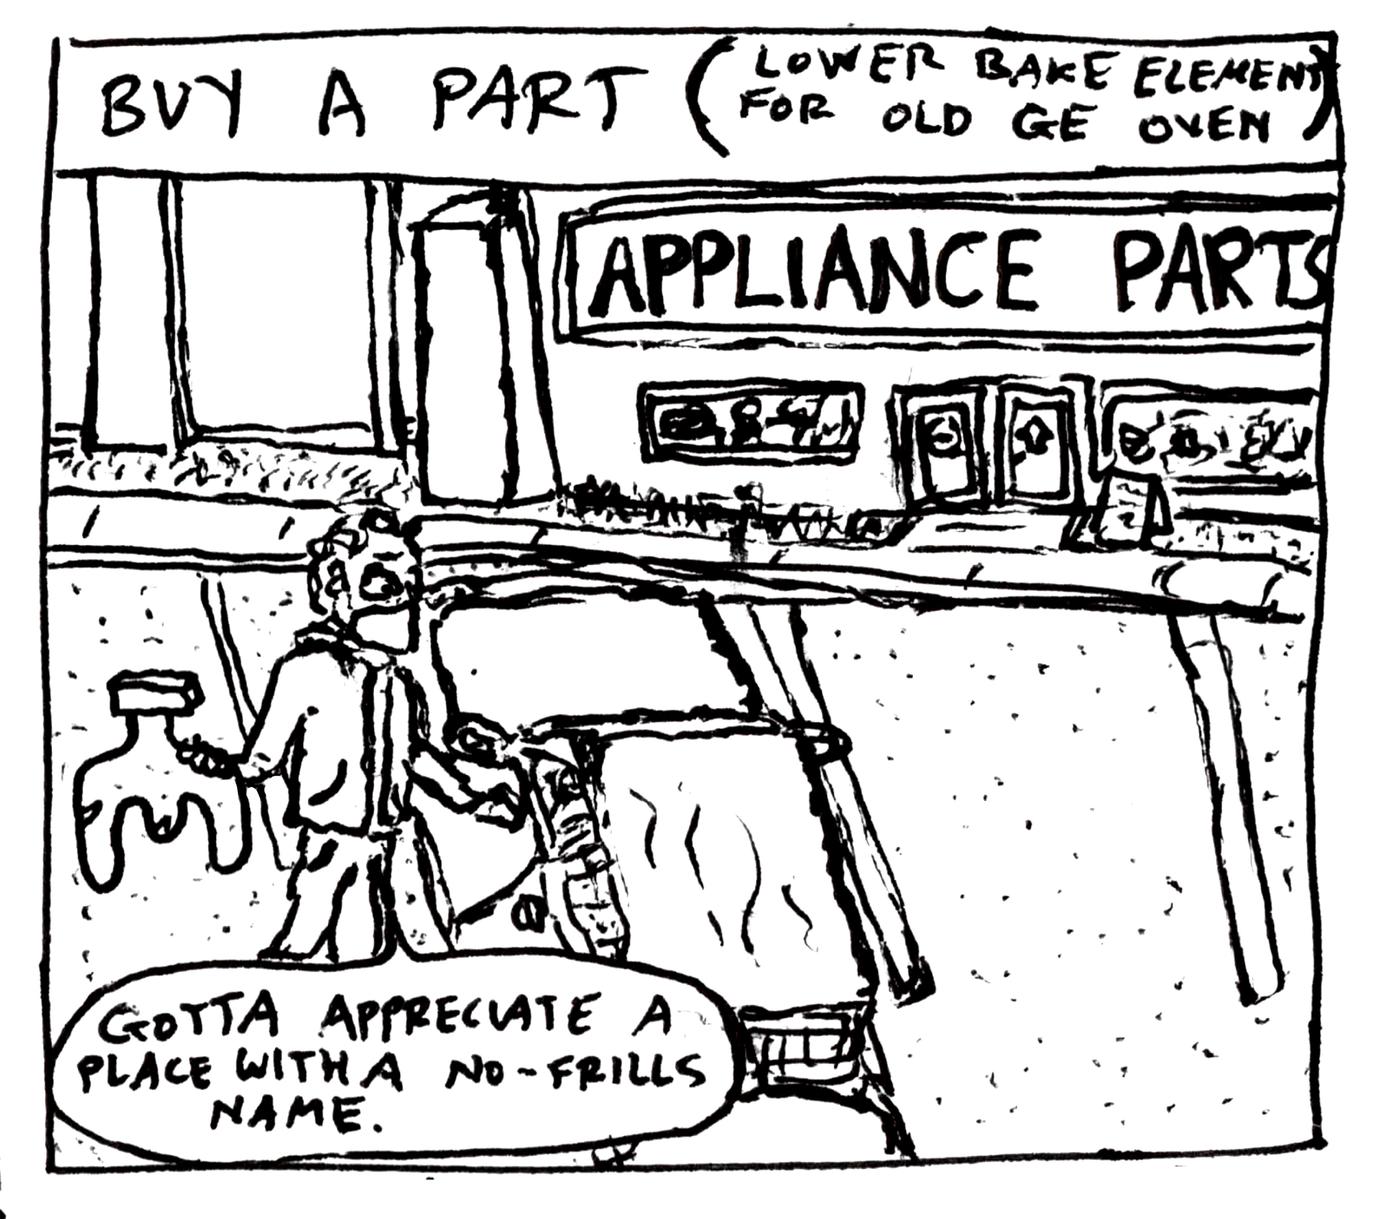 BUY A PART (LOWER BAKE ELEMENT
FOR OLD GE OVEN)
APPLIANCE PARTS
GOTTA APPRECIATE A
PLACE WITH A NO-FRILLS
NAME.